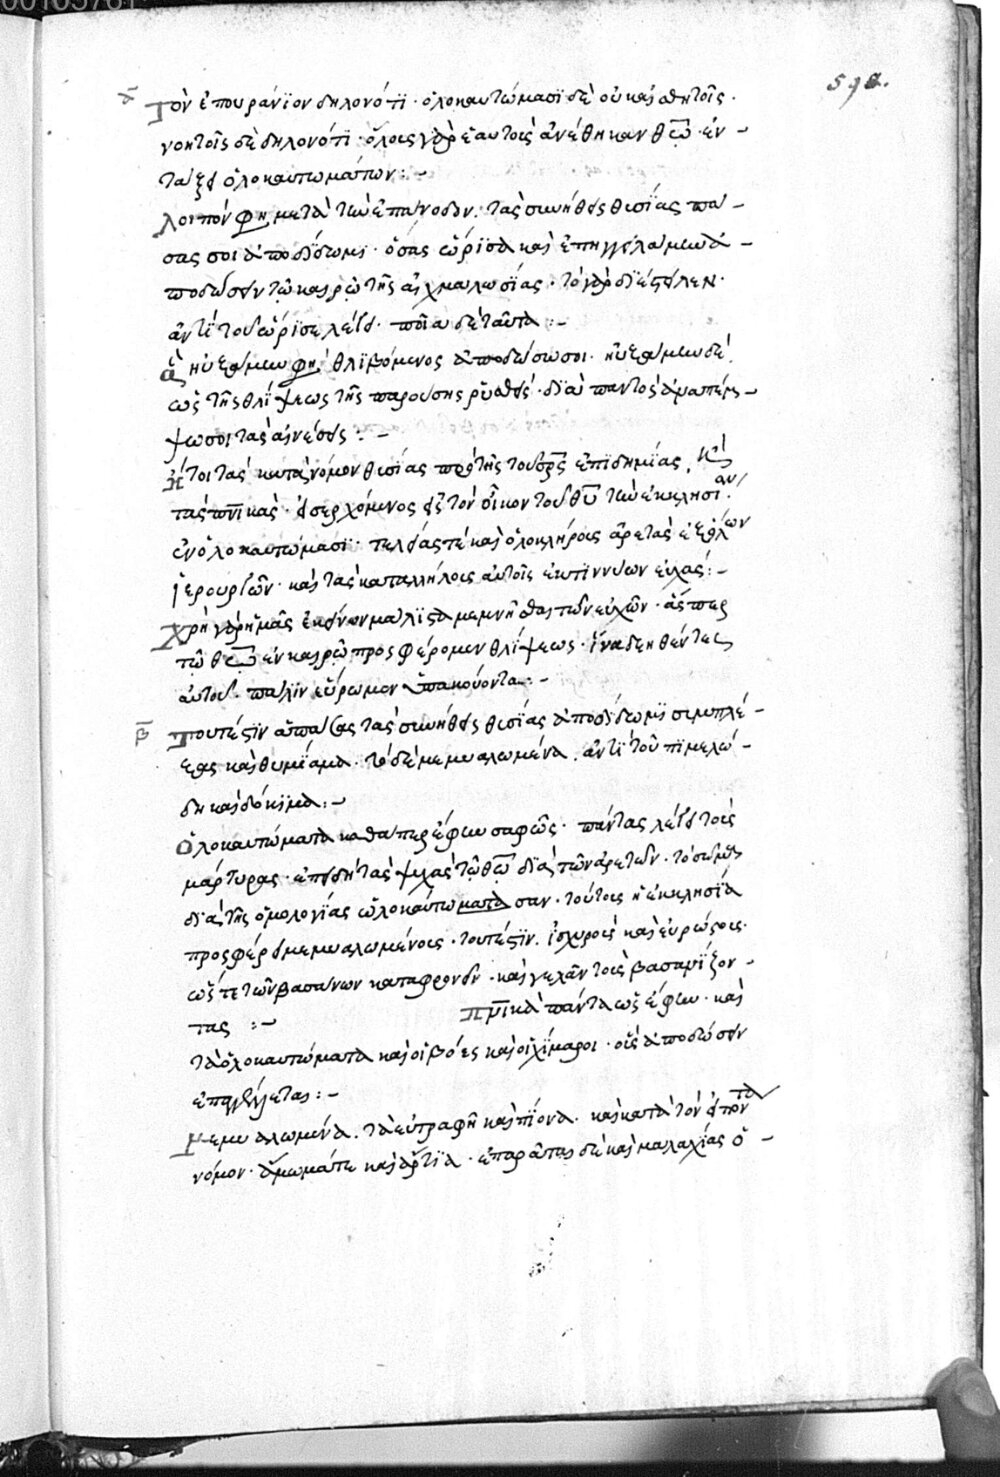 Τὸν ἐπουράνϊον δηλονότϊ · ὁλοκαυτώμασϊ δὲ οὐκ αἰσθητοῖς ·
νοητοῖς δὲ δηλονότϊ · ὅλους γὰρ ἑαυτοὺς ἀνέθηκαν θ̅ω̅ · ἐν
τάξει ὁλοκαυτωμάτων : –
Λοιπόν φη μετὰ τὴν ἐπάνοδον · τὰς συνήθεις θυσΐας πά –
σας σοι ἀποδίδωμϊ · ὅσας ὥρϊσα καὶ ἐπηγγειλάμην ἀ –
ποδώσειν τῷ καιρῷ τῆς αἰχμαλωσίας · τὸ γὰρ διέστειλεν ·
ἀντὶ τοῦ ὥρϊσε λέγει · ποῖα δὲ ταῦτα : –
ἃ ηὐξάμην φη, θλϊβόμενος ἀποδώσω σοι · ηὐξάμην δέ
ὡς τῆς θλίψεως τῆς παρούσης ῥυσθείς · διὰ παντὸς ἀναπέμ –
ψω σοι τὰς αἰνέσεις : –
Ἤτοι τὰς κατὰ νόμον θυσΐας πρὸ τῆς τοῦ σ̅ρ̅ς̅ ἐπϊδημίας · κὶ
τὰς π̅ν̅ϊκὰς · εἰσερχόμενος εἰς τὸν οἶκον τοῦ θ̅υ̅ τὴν ἐκκλησίαν ·
ἐν ὁλοκαυτώμασϊ · τελείας τὲ καὶ ὁλοκλήρους ἀρετὰς
ἱερουργῶν · καὶ τὰς καταλλήλους αὐτοῖς ἐκτιννύων εὐχάς : –
Χρὴ γὰρ ἡμᾶς ἐκείνων μάλϊστα μεμνῆσθαι τῶν εὐχῶν · ἅσπερ
τῷ θ̅ω̅ ἐν καιρῷ προσφέρομεν θλίψεως · ἵνα δεηθέντες
αὐτοῦ · πάλϊν εὕρωμεν ὑπακούοντα : –
β̅ Τουτέστϊν ἁπάσας τὰς συνήθεις θυσΐας ἀποδίδωμϊ
καὶ θυμίαμα · τὸ δὲ μεμυαλωμένα · ἀντὶ τοῦ πϊμελώ –
δη καὶ δόκϊμα : –
Ὁλοκαυτώματα καθάπερ ἔφην σαφῶς · πάντας λέγει τοὺς
μάρτυρας · ἐπειδὴ τὰς ψυχὰς τῷ θ̅ω̅ διὰ τῶν ἀρετῶν · τὸ σῶμα
διὰ τῆς ὁμολογίας ὡλοκαυτωμάτωσαν · τούτους ἡ ἐκκλησΐα
προσφέρει μεμυαλωμένους · τουτέστϊν · ἰσχυροὺς καὶ εὐρώστους ·
ὥστε τῶν βασάνων καταφρονεῖν · καὶ γελᾶν τοὺς βασανΐζον –
τας : –        π̅ν̅ϊκὰ πάντα ὡς ἔφην · καὶ
τὰ ὁλοκαυτώματα καὶ οἱ βόες καὶ οἱ χίμαροι · οὓς ἀποδώσειν
ἐπαγγέλλεται : –
Μεμυαλωμένα · τὰ εὐτραφῆ καὶ πίονα · καὶ κατὰ τὸν εἰπόντα
νόμον · ἄμωμά τε καὶ ἄρτϊα · ἐπαρᾶται δὲ καὶ μαλαχίας ὁ –